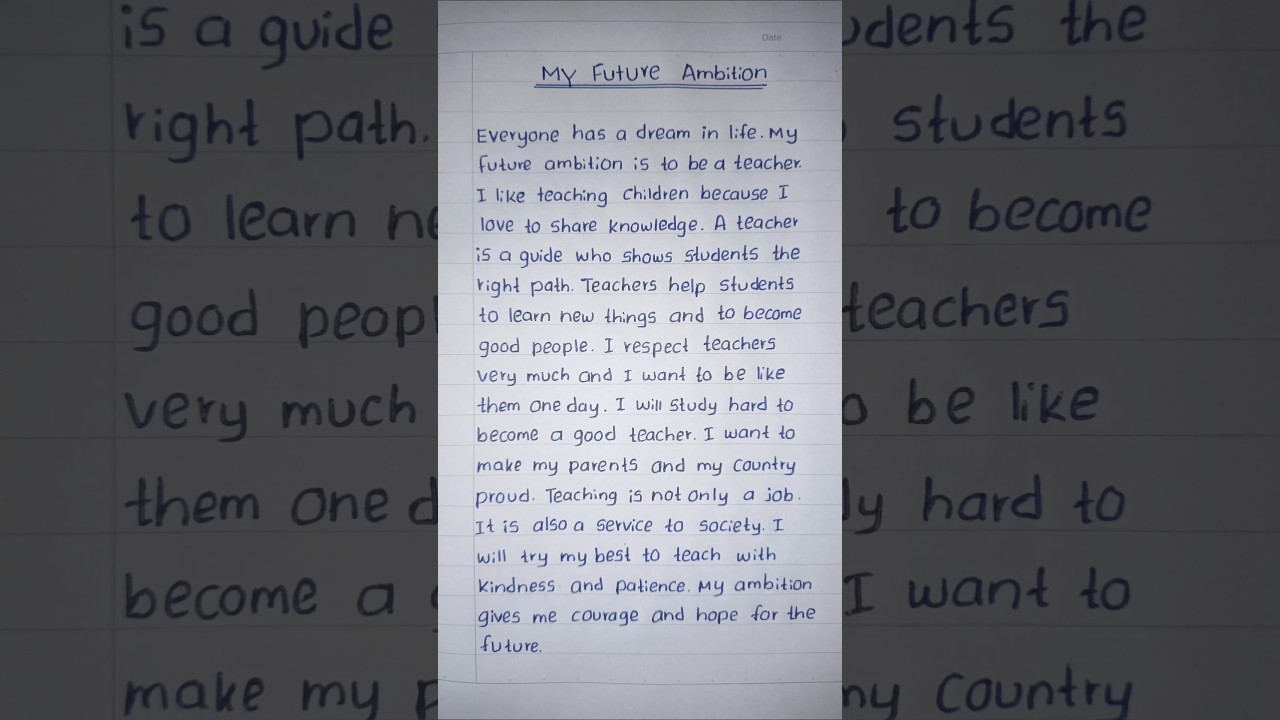 Date
My Future Ambition
Everyone has a dream in life. My
future ambition is to be a teacher.
I like teaching children because I
love to share knowledge. A teacher
is a guide who shows students the
right path. Teachers help students
to learn new things and to become
good people. I respect teachers
very much and I want to be like
them one day. I will study hard to
become a good teacher. I want to
make my parents and my country
proud. Teaching is not only a job.
It is also a service to society. I
will try my best to teach with
kindness and patience. My ambition
gives me courage and hope for the
future.